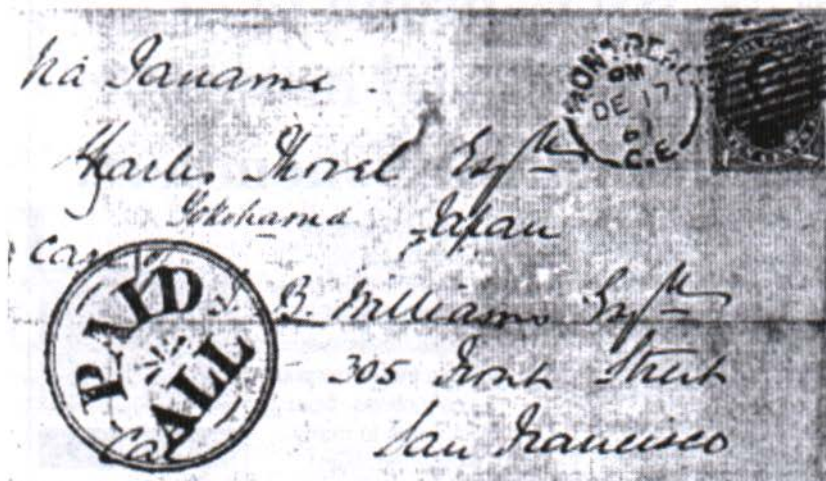 via Panama
MONTREAL
PM
DE 17
61
C.E
Charles Thorel Esqre
Yokohama Japan
care
S. B. Williams Esqre
305 Front Street
San Francisco
Cal
PAID
ALL